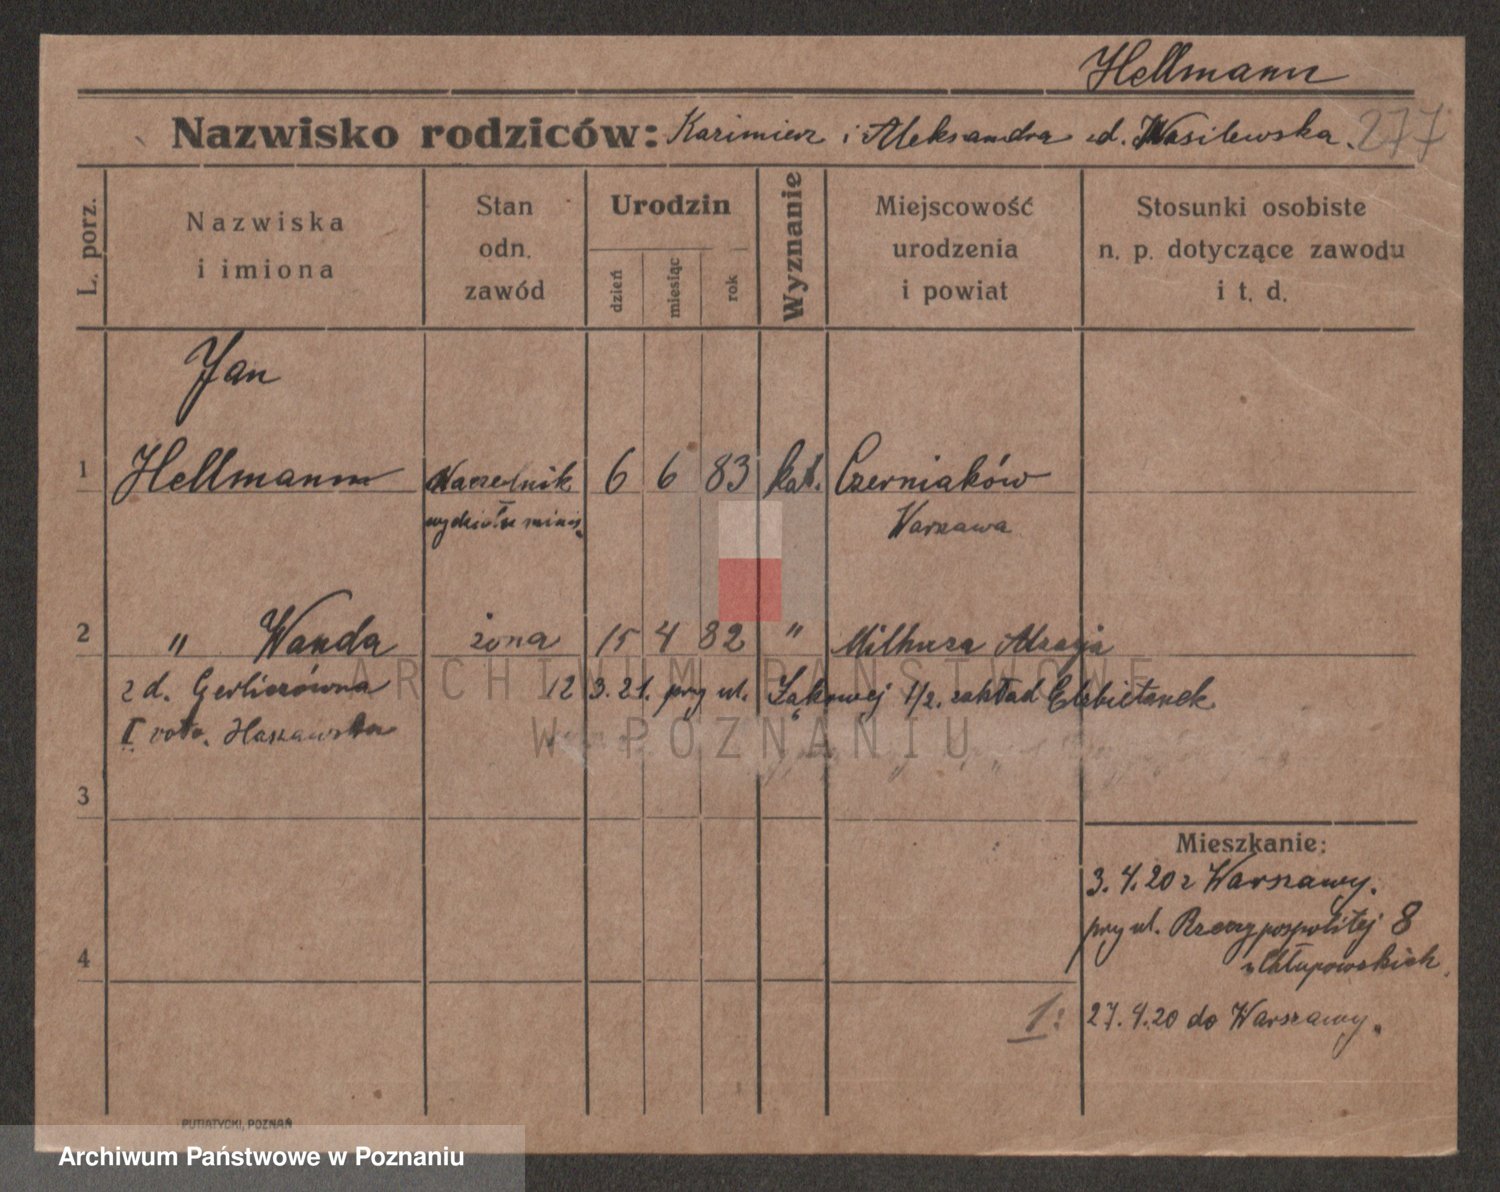 Hellmann
Nazwisko rodziców: Kazimierz i Aleksandra z d. Wasilewska. 277
L. porz.
Nazwiska
i imiona
Stan
odn.
zawód
Urodzin
dzień
miesiąc
rok
Wyznanie
Miejscowość
urodzenia
i powiat
Stosunki osobiste
n. p. dotyczące zawodu
i t. d.
Jan
1 Hellmann Naczelnik 6 6 83 kat. Czerniaków
wydziału minis. Warszawa
2 " Wanda żona 15 4 82 " Milhuza Alzacja
z d. Gerliczówna 12 3. 21. przy ul. Łąkowej 1/2. zakład Elżbietanek
I voto.
3
4
Mieszkanie:
3. 4. 20 z Warszawy.
przy ul. Rzeczypospolitej 8
u Chłapowskich
1: 27. 4. 20 do Warszawy.
PUTIATYCKI, POZNAŃ
ARCHIWUM PAŃSTWOWE
W POZNANIU
Archiwum Państwowe w Poznaniu